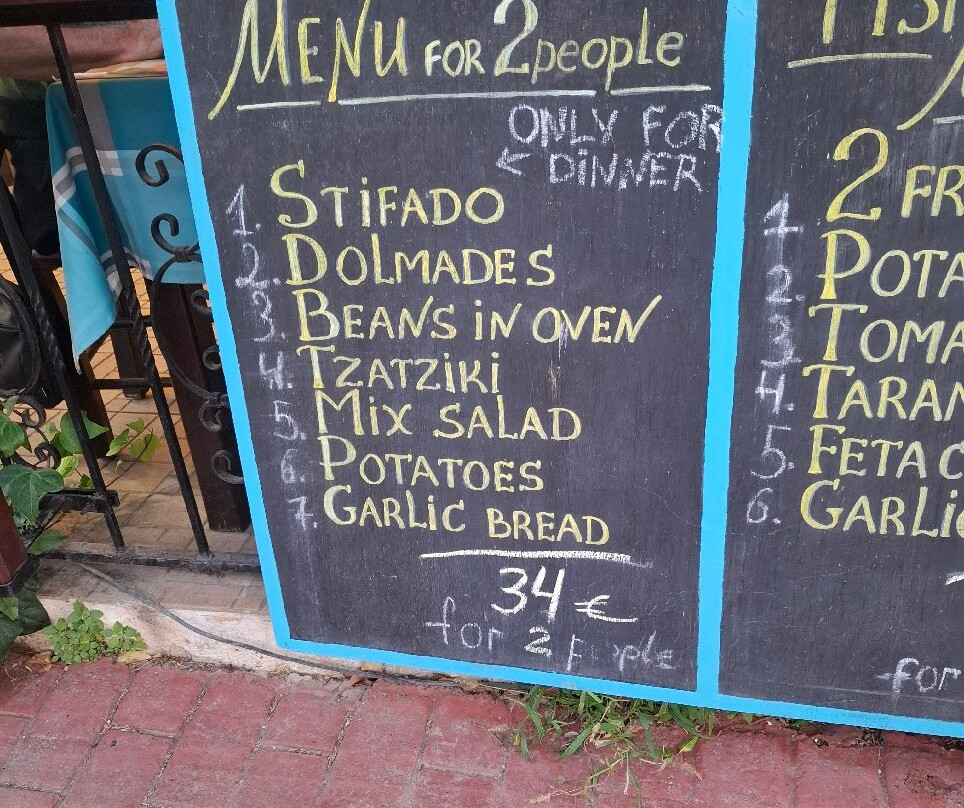 MENU FOR 2 people
ONLY FOR
← DINNER
1. STIFADO
2. DOLMADES
3. BEANS IN OVEN
4. TZATZIKI
5. MIX SALAD
6. POTATOES
7. GARLIC BREAD
34 €
for 2 people
2 FR
1. POTA
2. TOMA
3. TARAN
4. FETA C
5. GARLIC
6.
for